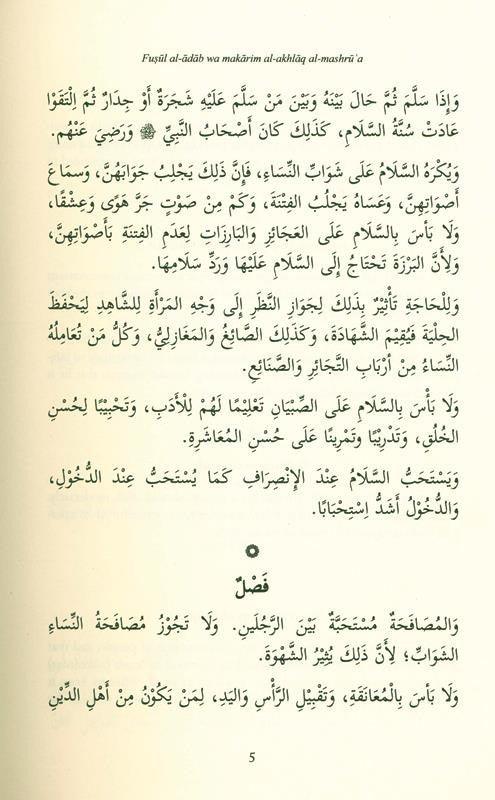 Fuṣūl al-ādāb wa makārim al-akhlāq al-mashrūʿa
وَإِذَا سَلَّمَ ثُمَّ حَالَ بَيْنَهُ وَبَيْنَ مَنْ سَلَّمَ عَلَيْهِ شَجَرَةٌ أَوْ جِدَارٌ ثُمَّ اِلْتَقَوْا
عَادَتْ سُنَّةُ السَّلَامِ، كَذَلِكَ كَانَ أَصْحَابُ النَّبِيِّ ﷺ وَرَضِيَ عَنْهُم.
وَيُكْرَهُ السَّلَامُ عَلَى شَوَابِّ النِّسَاءِ، فَإِنَّ ذَلِكَ يَجْلِبُ جَوَابَهُنَّ، وَسمَاعَ
أَصْوَاتِهِنَّ، وَعَسَاهُ يَجْلُبُ الفِتْنَةَ، وَكَمْ مِنْ صَوْتٍ جَرَّ هَوًى وَعِشْقًا،
وَلَا بَأْسَ بِالسَّلَامِ عَلَى العَجَائِزِ وَالبَارِزَاتِ لِعَدَمِ الفِتنَةِ بِأَصْوَاتِهِنَّ،
وَلِأَنَّ البَرْزَةَ تَحْتَاجُ إِلَى السَّلَامِ عَلَيْهَا وَرَدِّ سَلَامِهَا.
وَلِلْحَاجَةِ تَأْثِيْرٌ بِذَلِكَ لِجَوَازِ النَّظَرِ إِلَى وَجْهِ المَرْأَةِ لِلشَّاهِدِ لِيَحْفَظَ
الحِلْيَةَ فَيُقِيْمَ الشَّهَادَةَ، وَكَذَلِكَ الصَّائِغُ وَالمَغَازِلِيُّ، وَكُلُّ مَنْ تُعَامِلُهُ
النِّسَاءُ مِنْ أَرْبَابِ التَّجَائِرِ وَالصَّنَائِعِ.
وَلَا بَأْسَ بِالسَّلَامِ عَلَى الصِّبْيَانِ تَعْلِيْمًا لَهُمْ لِلْأَدَبِ، وَتَحْبِيْبًا لِحُسْنِ
الخُلُقِ، وَتَدْرِيْبًا وَتَمْرِينًا عَلَى حُسْنِ المُعَاشَرَةِ.
وَيَسْتَحَبُّ السَّلَامُ عِنْدَ الإِنْصِرَافِ كَمَا يُسْتَحَبُّ عِنْدَ الدُّخُوْلِ،
وَالدُّخُوْلُ أَشَدُّ اِسْتِحْبَابًا.
فَصْلٌ
وَالمُصَافَحَةُ مُسْتَحَبَّةٌ بَيْنَ الرَّجُلَينِ. وَلَا تَجُوْزُ مُصَافَحَةُ النِّسَاءِ
الشَوَابِّ؛ لِأَنَّ ذَلِكَ يُثِيْرُ الشَّهْوَةَ.
وَلَا بَأسَ بِالْمُعَانَقَةِ، وَتَقْبِيْلِ الرَّأْسِ وَاليَدِ، لِمَنْ يَكُوْنُ مِنْ أَهْلِ الدِّيْنِ
5